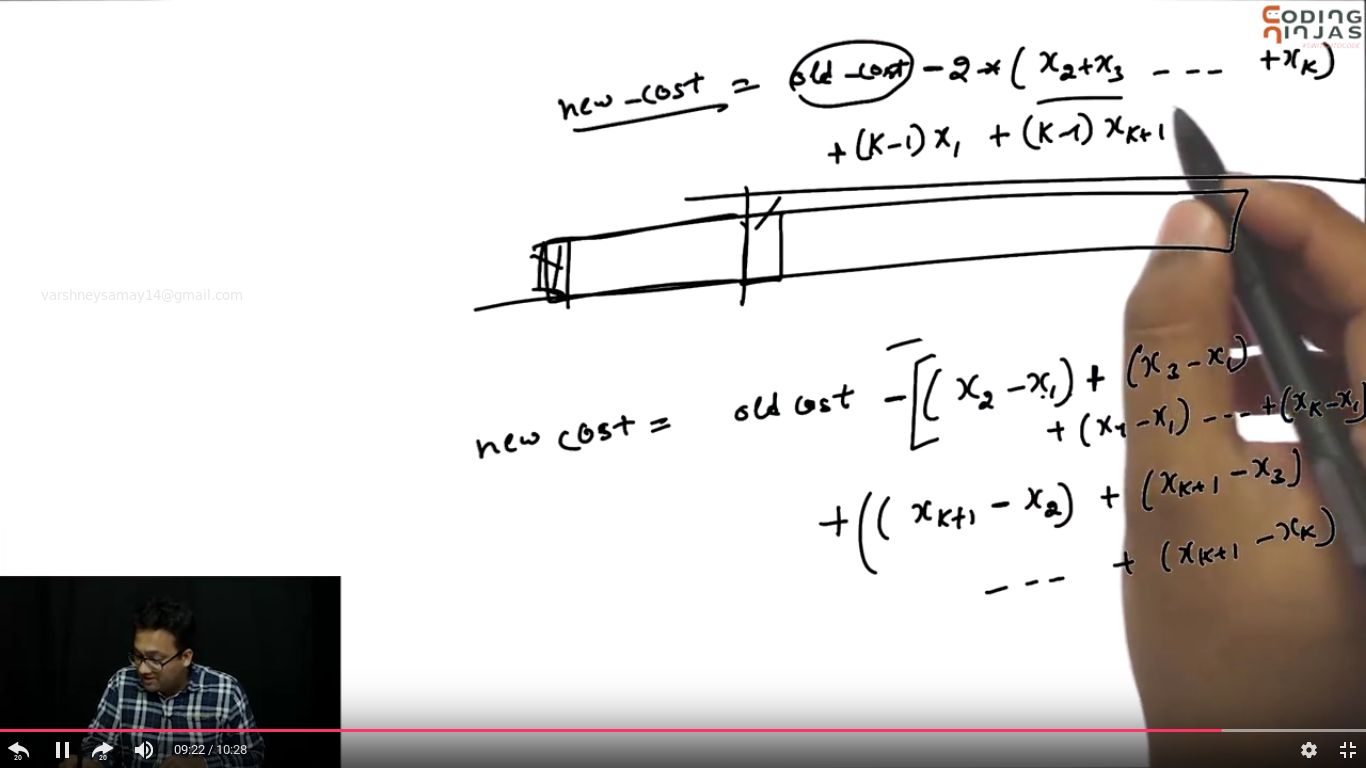 CODING
NINJAS
new_cost = old_cost - 2 * ( x₂+x₃ --- +xₖ)
+(K-1) x₁ + (K-1) xₖ₊₁
varshneysamay14@gmail.com
new cost = old cost - [( x₂ - x₁) + (x₃ - x₁)
+ (x₄ - x₁) --- + (xₖ - x₁)
+ (( xₖ₊₁ - x₂) + (xₖ₊₁ - x₃)
--- + (xₖ₊₁ - xₖ)
20
20
09:22 / 10:28